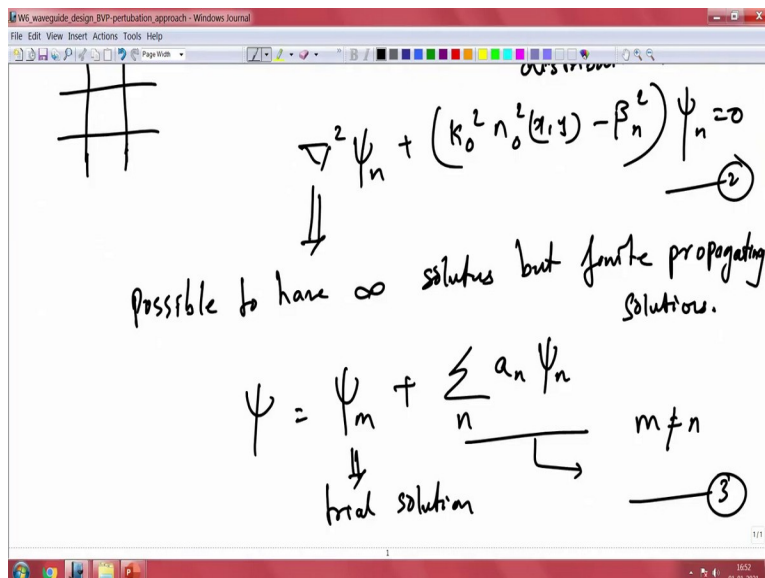 W6_waveguide_design_BVP-pertubation_approach - Windows Journal
File Edit View Insert Actions Tools Help
Page Width
∇²ψₙ + (k₀² n₀²(x,y) − βₙ²) ψₙ = 0
2
possible to have ∞ solutus but finite propagating
solutions.
ψ = ψₘ + Σₙ aₙ ψₙ m ≠ n
trial solution
3
1/1
1
16:52